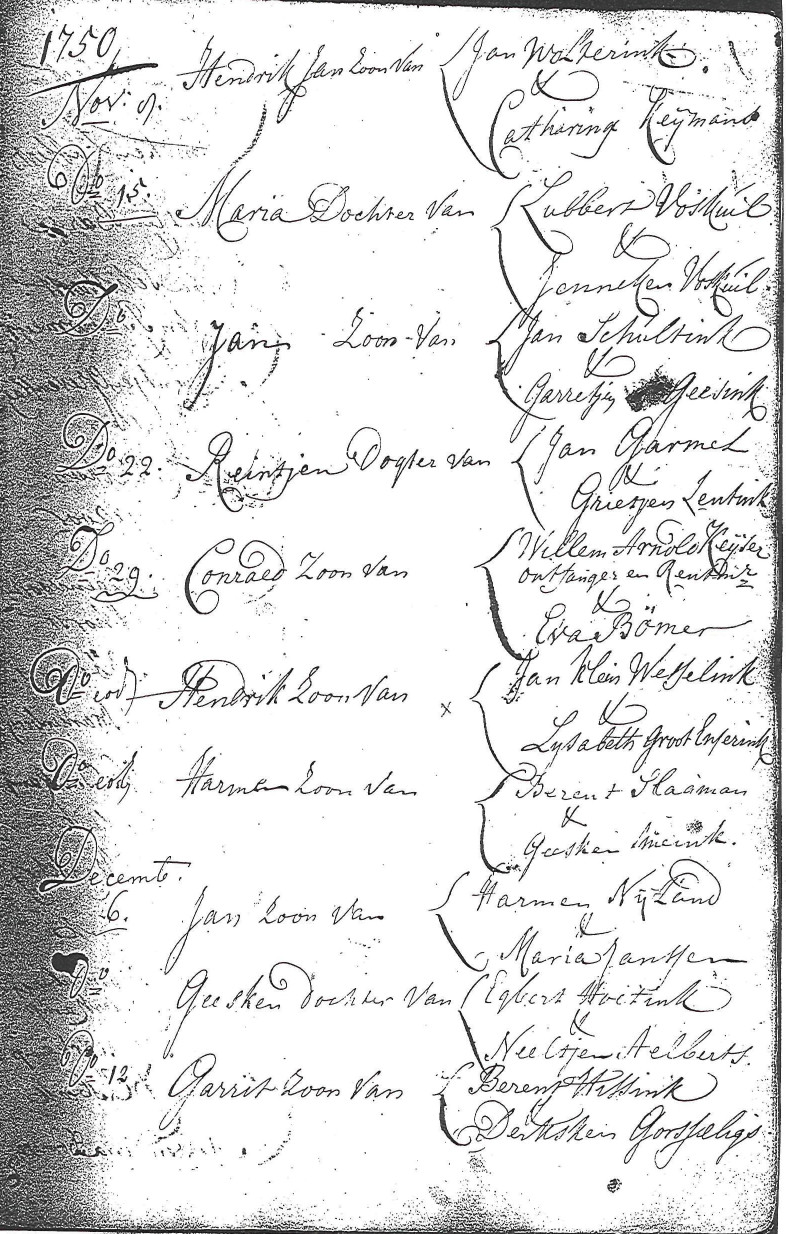 1750
Nov. 9. Hendrik Jan Zoon Van Jan Wolterink
&
Catharina Heijmans
Do 15. Maria Dochter Van Lubbert Voskuil
&
Jenneken Voskuil
Do Jan Zoon Van Jan Schultink
&
Garretjen Geesink
Do 22. Reintjen Dogter van Jan Garmel
&
Grietjen Lentink
Do 29. Conraed Zoon van Willem Arnold Keijser
ontfanger en Rentmr
&
Eva Bömer
Do eod Hendrik Zoon Van x Jan Klein Wesselink
&
Lysabeth Groot Enserink
Do eod Harmen Zoon Van Berent Haaman
&
Geesken
Decemb.
6. Jan Zoon Van Harmen Nijland
&
Maria Janssen
Do Geesken Dochter Van Egbert Hoitink
&
Neeltjen Aelberts.
Do 12 Garrit Zoon Van Berent Wissink
&
Derksken